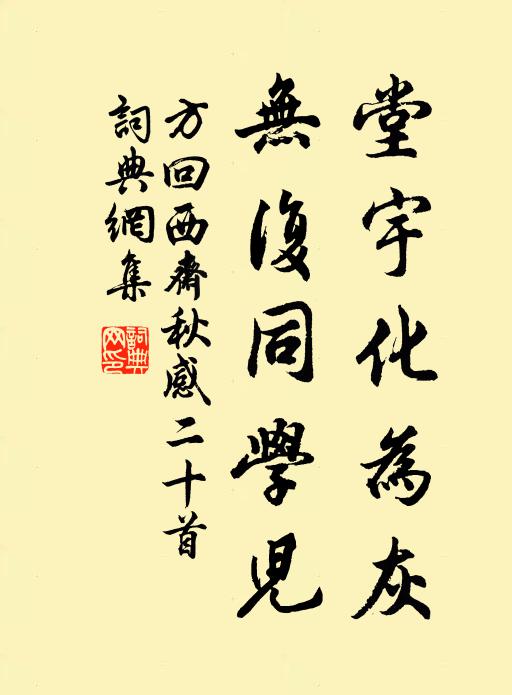 堂宇化為灰
無復同學児
方回西齋秋感二十首
詞典網集
詞典網印